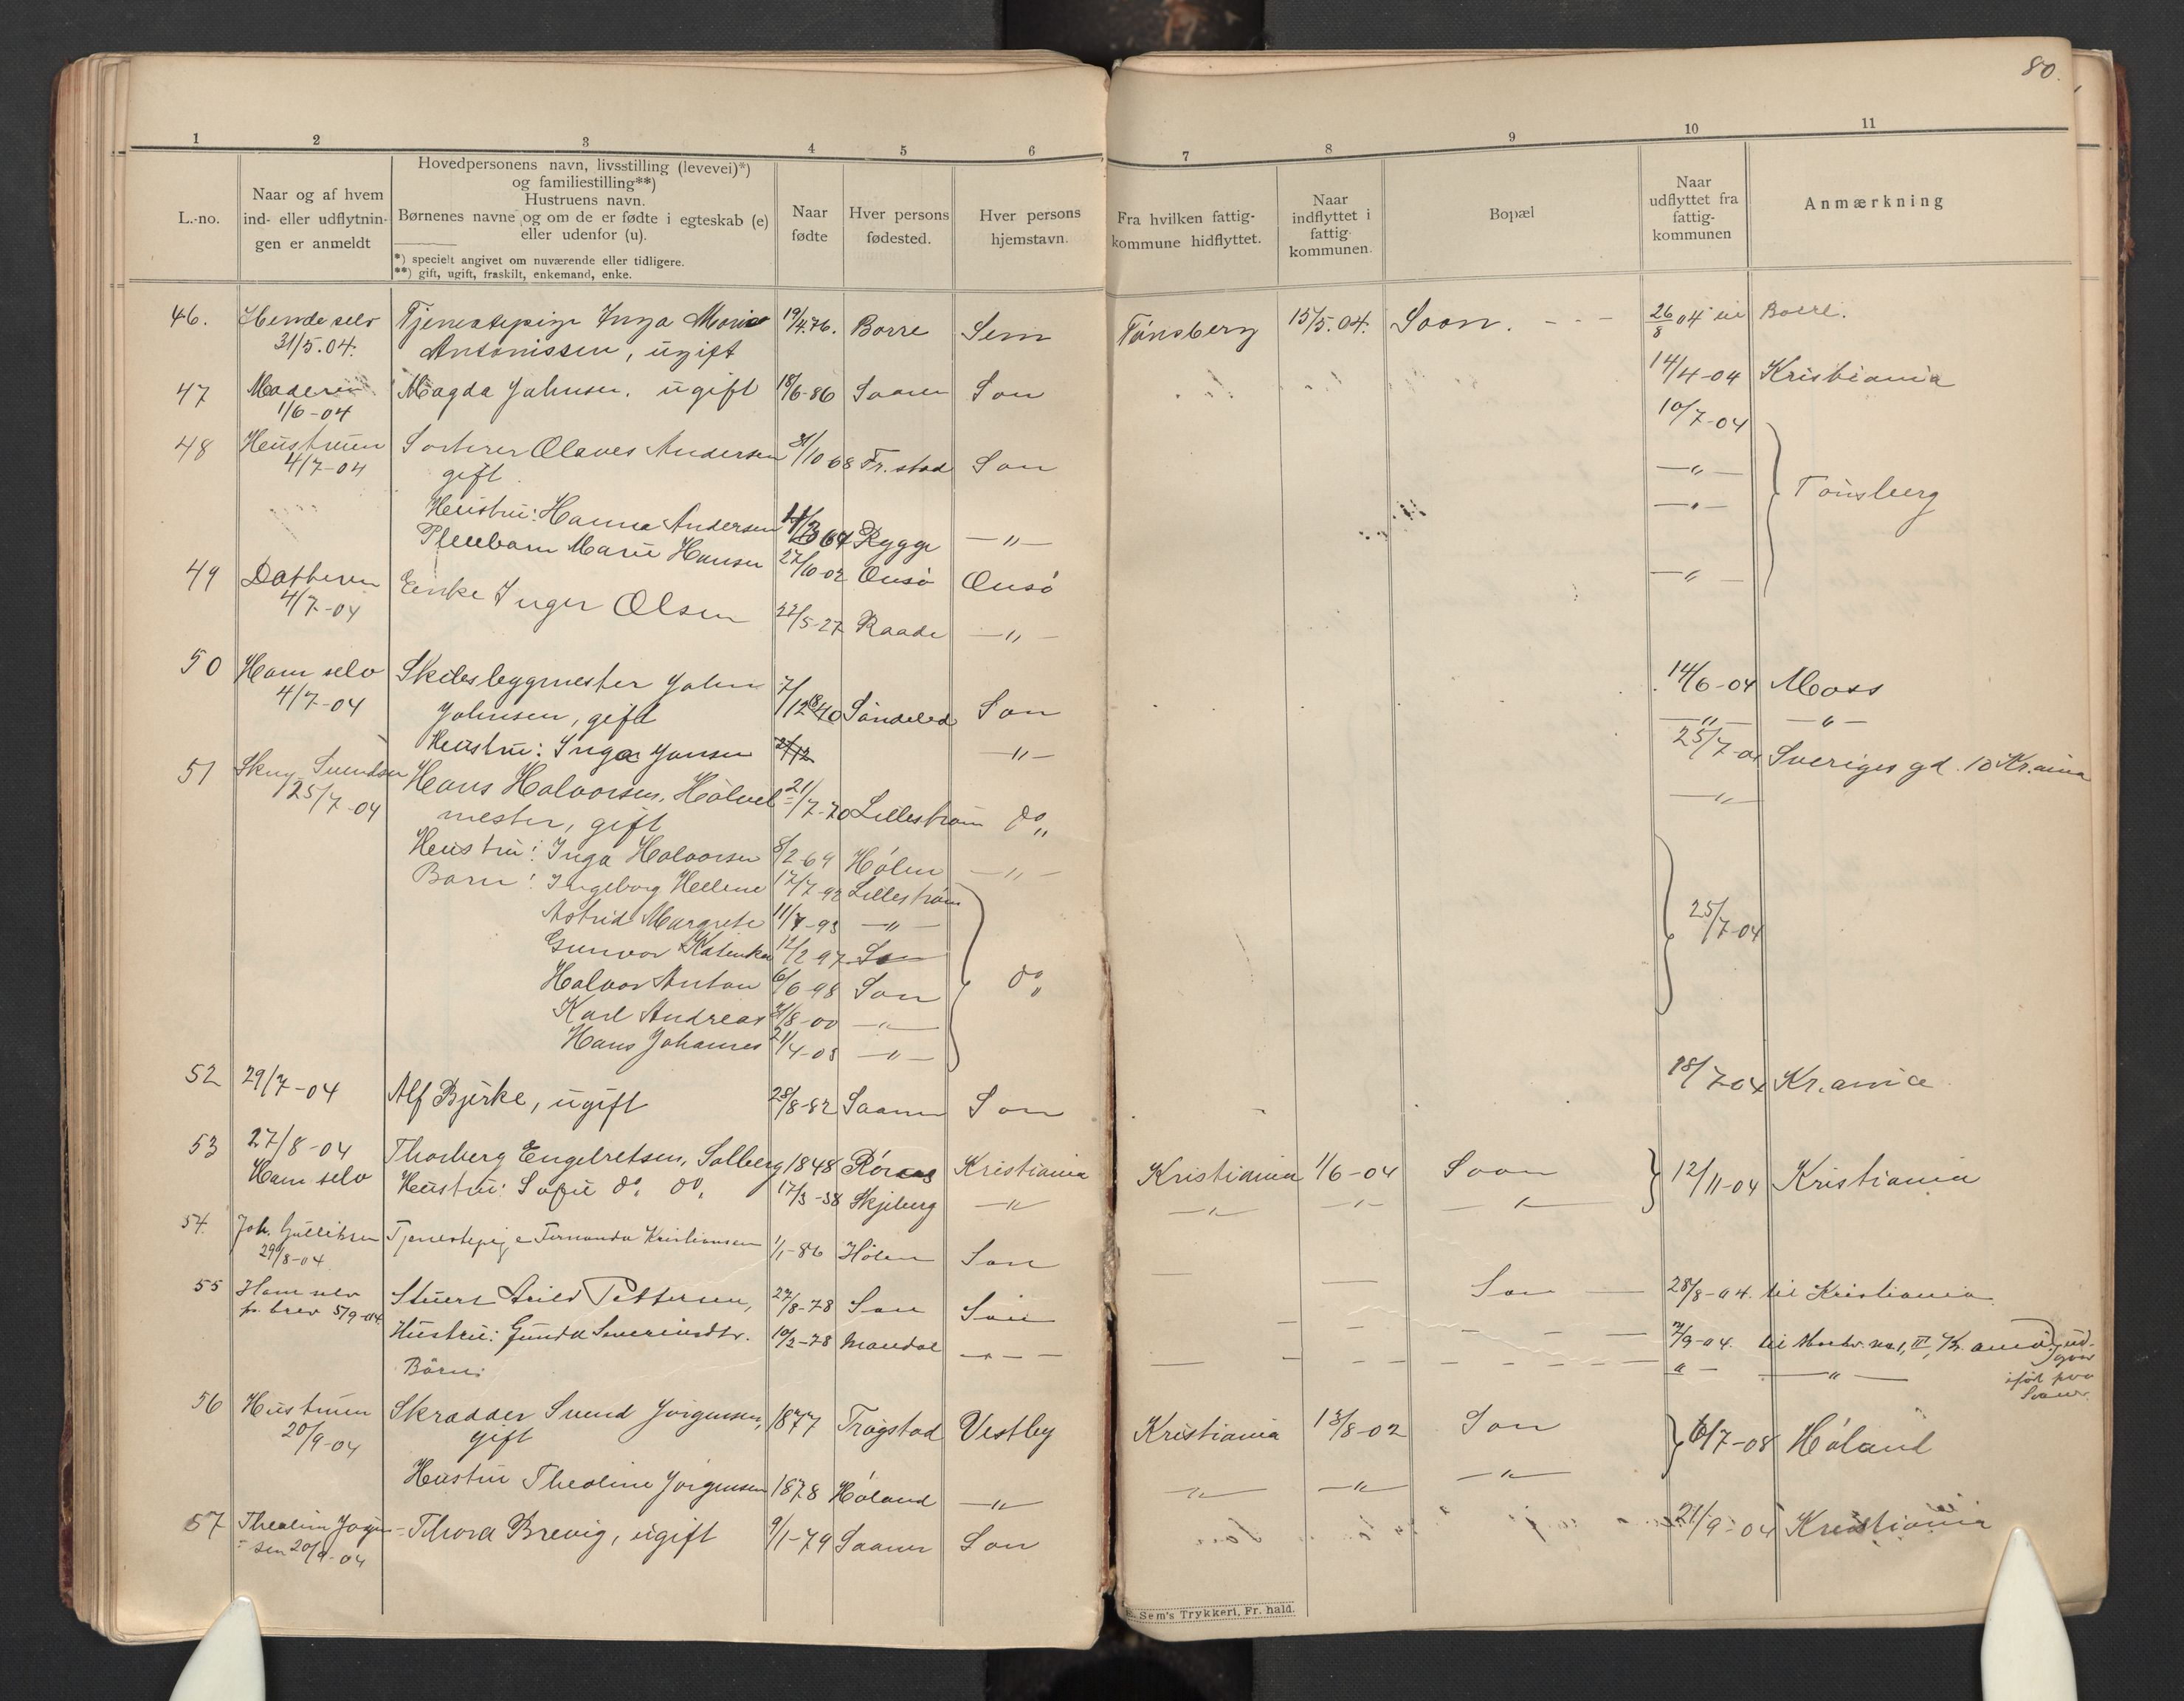 80.
1 2 3 4 5 6 7 8 9 10 11
L.-no.
Naar og af hvem
ind- eller udflytnin-
gen er anmeldt
Hovedpersonens navn, livsstilling (levevei)*)
og familiestilling**)
Hustruens navn.
Børnenes navne og om de er fødte i egteskab (e)
eller udenfor (u).
*) specielt angivet om nuværende eller tidligere.
**) gift, ugift, fraskilt, enkemand, enke.
Naar
fødte
Hver persons
fødested.
Hver persons
hjemstavn.
Fra hvilken fattig-
kommune hidflyttet.
Naar
indflyttet i
fattig-
kommunen.
Bopæl
Naar
udflyttet fra
fattig-
kommunen
Anmærkning
46. Hende selv Tjenestepige Inga Marie 19/4.76. Borre Sem Tönsberg 15/5.04. Soon. - - - 26/8 04 til Borre.
31/5.04. Antonissen, ugift
47 Moderen Magda Johnsen, ugift 18/6-86 Saaner Son 14/4-04 Kristiania
1/6-04
48 Hustruen Sorterer Olaves Andersen 31/10 68 Fr.stad Son 10/7-04
4/7-04 gift
Hustru: Hanna Andersen 64 Rygge —"— —"— Tönsberg
Pleiebarn Marie Hansen 27/10-02 Onsö Onsö —"—
49 Datteren Enke Inger Olsen 22/5-27 Raade —"— —"—
4/7-04
50 Ham selv Skibsbygmester John 7/12 1840 Söndeled Son 14/6-04 Moss
4/7-04 Johnsen, gift
Hustru: Inga Jonsen —"— —"— —"—
51 Skny Svendsen Hans Halvorsen, Hölvel 21/7-70 Lilleström do " 25/7-04 Sveriges gd. 10 Kr.ania
25/7-04 mester, gift
Hustru: Inga Halvorsen 8/2-69 Hölen —"— —"—
Barn: Ingeborg Hellene 17/7-92 Lilleström
Astrid Margrete 11/7-93 —"—
Gunvor Katinka 12/2-97 Son 25/7-04
Halvor Anton 6/6-98 Son do "
Karl Andreas /8-00 —"—
Hans Johannes 21/4-03 —"—
52 29/7-04 Alf Bjerke, ugift 28/8-82 Saaner Son 18/7-04 Kr.ania
53 27/8-04 Thorberg Engebretsen, Solberg 1848 Röraas Kristiania Kristiania 1/6-04 Soon 12/11-04 Kristiania
Ham selv Hustru: Sofie do. do. 17/3-38 Skjeberg —"— —"— —"— —"—
54. Joh. Gulliksen Tjenestepige Fernanda Kristiansen 1/1-86 Hölen Son — — Son — 28/8-04. til Kristiania
29/8-04.
55 Ham selv Stuert Arild Pettersen, 27/8-78 Son Son /9-04. til Markv. no 1, II, Kr.ania ud-
pr. brev 5/9-04. Hustru: Gunda Severinsdtr. 10/2-78 Mandal —"— —"—
Börn:
56 Hustruen Skrædder Svend Jörgensen, 1877 Trögstad Vestby Kristiania 13/8-02 Son 6/7-08 Höland
20/9-04 gift
Hustru Theoline Jörgensen 1878 Höland —"— —"— —"— —"—
57 Theoline Jörgen- Thora Brevig, ugift 9/1-79 Saaner Son 21/9-04 Kristiania
sen 20/9-04
E. Sem's Trykkeri, Fr. hald.